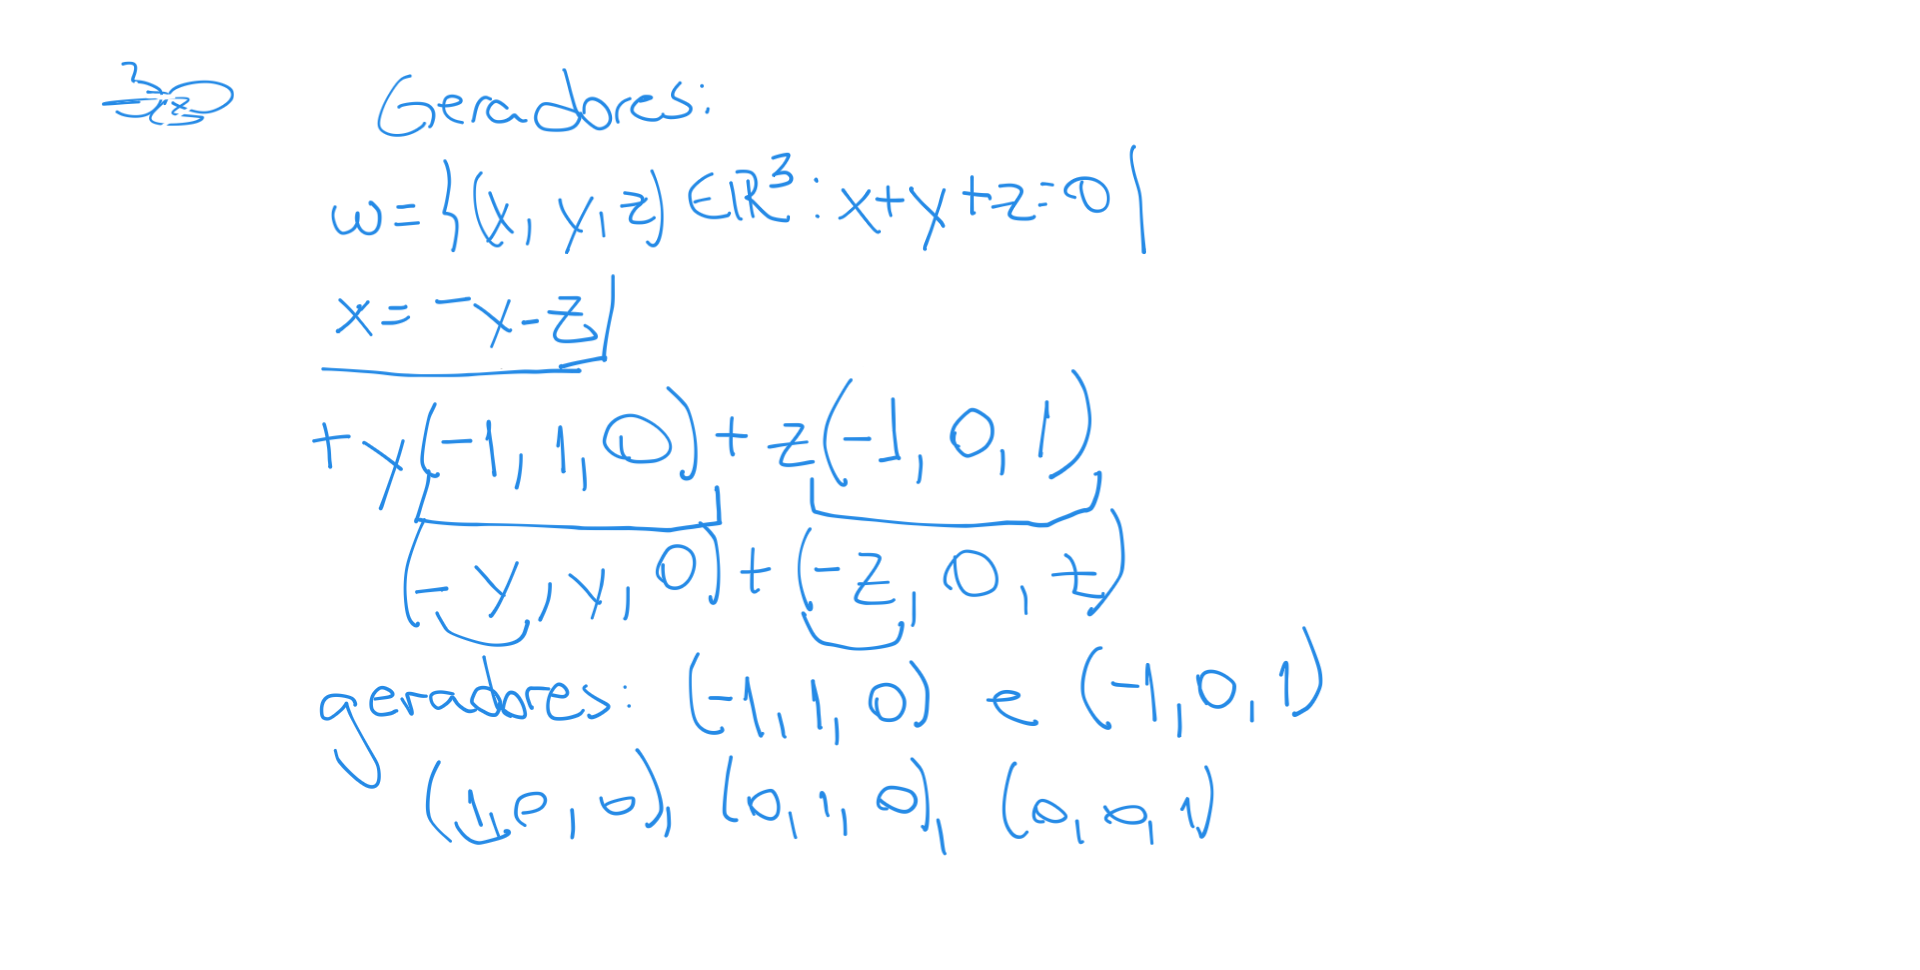 Geradores:
w={(x, y, z) ∈ ℝ³: x+y+z=0
x= -y-z
+y(-1, 1, 0) + z(-1, 0, 1)
(-y, y, 0) + (-z, 0, z)
geradores: (-1, 1, 0) e (-1, 0, 1)
(1, 0, 0), (0, 1, 0), (0, 0, 1)